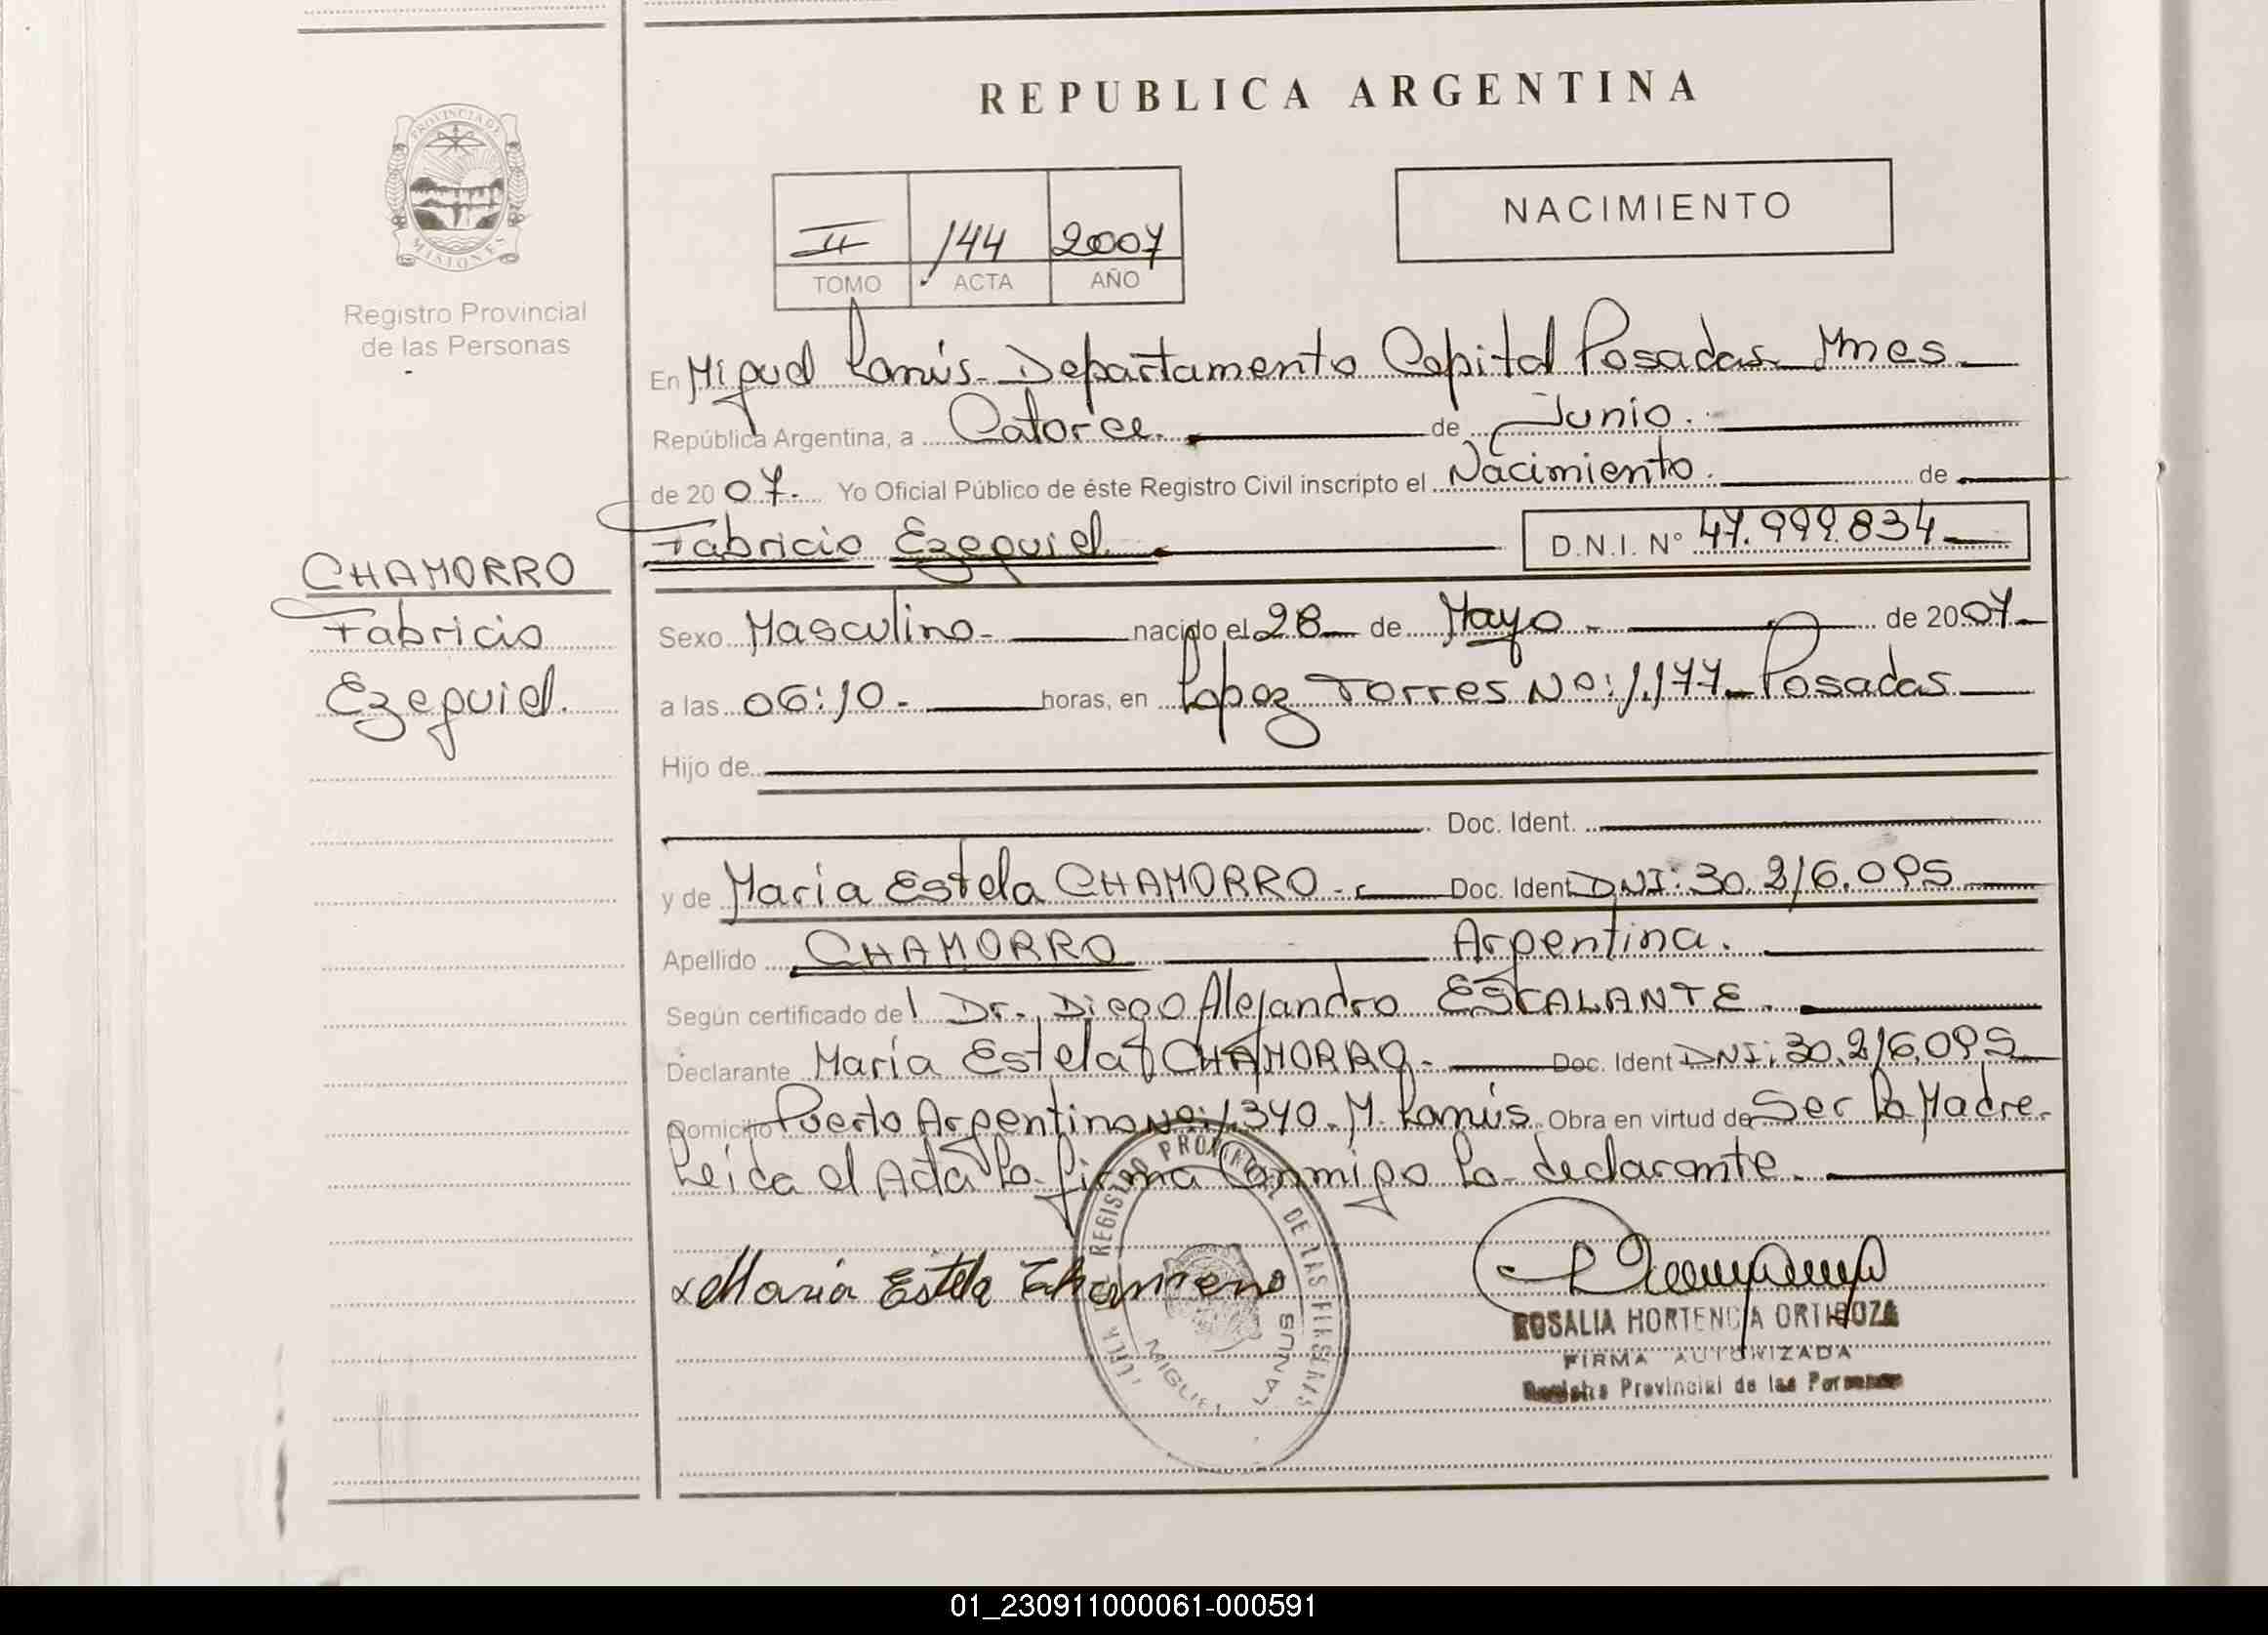 REPUBLICA ARGENTINA
PROVINCIA DE
MISIONES
Registro Provincial
de las Personas
NACIMIENTO
II 144 2007
TOMO ACTA AÑO
En Miguel Lanús - Departamento Capital Posadas - Mnes -
República Argentina, a Catorce. de Junio.
de 2007.- Yo Oficial Público de éste Registro Civil inscripto el Nacimiento. de
Fabricio Ezequiel D.N.I. N° 47.999.834
CHAMORRO
Fabricio
Ezequiel.
Sexo Masculino - nacido el 28 de Mayo - de 2007
a las 06:10 - horas, en Lopez Torres Nº: 1.177 - Posadas
Hijo de
Doc. Ident.
y de María Estela CHAMORRO - Doc. Ident DNI: 30.216.095
Apellido CHAMORRO Argentina.
Según certificado del Dr. Diego Alejandro ESCALANTE.
Declarante María Estela CHAMORRO - Doc. Ident DNI: 30.216.095
Domicilio Puerto Argentino Nº: 1.340 - M. Lanús. Obra en virtud de Ser la Madre.
Leída el Acta la firma Conmigo la declarante.
x María Estela Chamorro
REGISTRO PROVINCIAL DE LAS PERSONAS
MIGUEL LANUS
ROSALIA HORTENCIA ORTIGOZA
FIRMA AUTORIZADA
Registro Provincial de las Personas
01_230911000061-000591